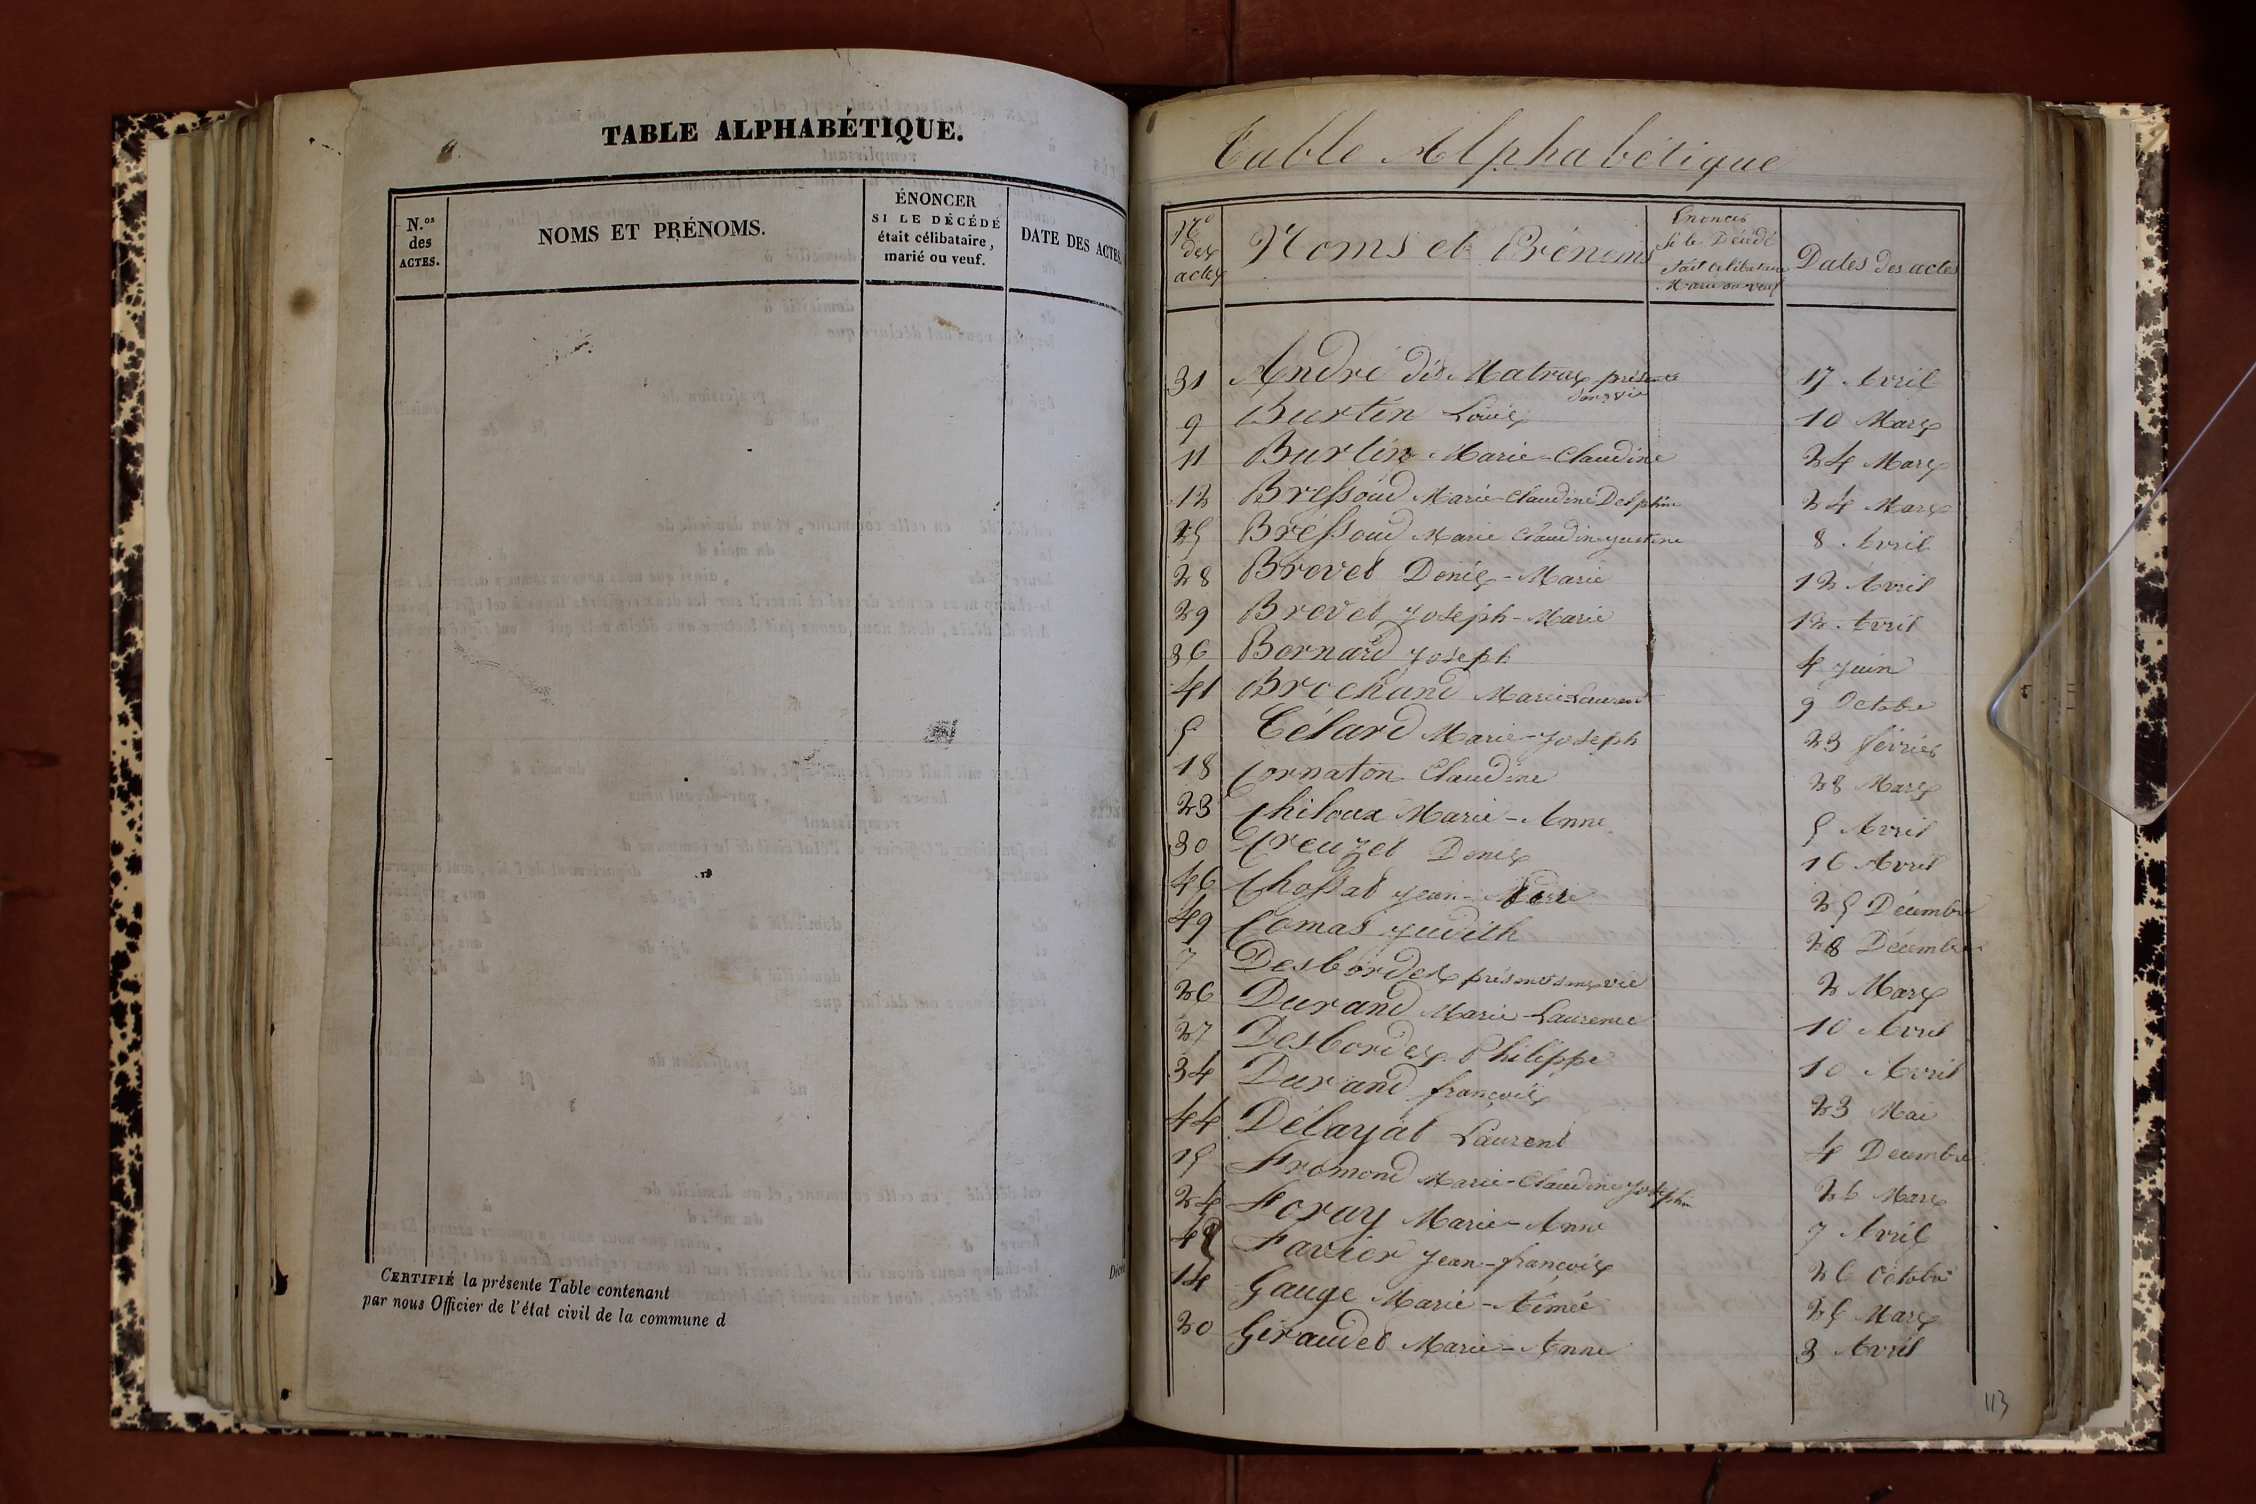 TABLE ALPHABÉTIQUE.
N.os des ACTES.
NOMS ET PRÉNOMS.
ÉNONCER
SI LE DÉCÉDÉ
était célibataire,
marié ou veuf.
DATE DES ACTES.
CERTIFIÉ la présente Table contenant
par nous Officier de l'état civil de la commune d
Table Alphabétique
No des actes
Noms et Prénoms
Enoncer
si le Décédé
était célibataire
Marié ou veuf
Dates des actes
31 André dit Matras présenté 17 Avril
sans vie
9 Burtin Louis 10 Mars
11 Burtin Marie-Claudine 24 Mars
12 Bressoud Marie-Claudine Delphine 24 Mars
25 Bressoud Marie Claudine justine 8 Avril
28 Brevet Denis-Marie 12 Avril
29 Brevet joseph-Marie 12 Avril
36 Bornard joseph 4 juin
41 Brochand Marie-Laurent 9 Octobre
5 Célard Marie-joseph 23 février
18 Cornaton Claudine 28 Mars
23 Chiloux Marie-Anne 5 Avril
30 Creuzet Denis 16 Avril
46 Chossat jean-Marie 25 Décembre
49 Comas judith 28 Décembre
7 Desbordes présenté sans vie 2 Mars
26 Durand Marie-Laurence 10 Avril
27 Desbordes Philippe 10 Avril
34 Durand françois 23 Mai
44 Délayat Laurent 4 Decembre
15 Fromond Marie-Claudine josephine 26 Mars
24 Foray Marie-Anne 7 Avril
42 Favier jean-françois 26 Octobre
14 Gauge Marie-Aimée 25 Mars
20 Giraudet Marie-Anne 3 Avril
113